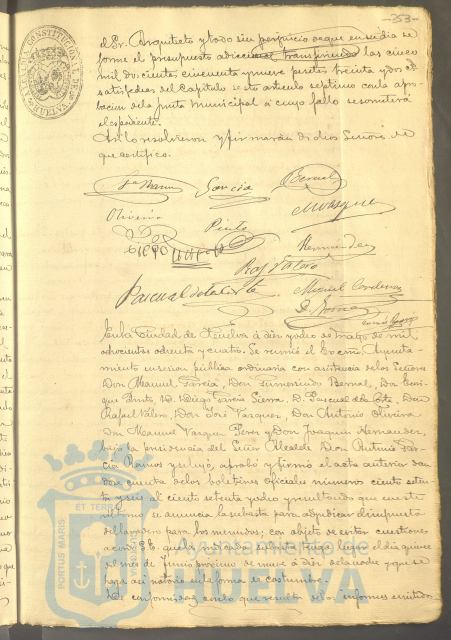 -53-
ALCALDIA CONSTITUCIONAL DE HUELVA
el Sr. Arquitecto y todo sin perjuicio de que en su dia se
forme el presupuesto adicional transfiriendo las cinco
mil doscientas cincuenta y nueve pesetas treinta y dos
satisfechas del Capitulo sesto articulo septimo con la apro-
bacion de la Junta Municipal a cuyo fallo se someterá
el espediente.
Asi lo resolvieron y firmaran dichos Señores de
que certifico.
Garcia Bernal
Oliveira Vazquez
Pinto
Diego Hernandez
Raf Valero
Pascual de la Corte Miguel Cardenas
En la Ciudad de Huelva á diez y ocho de Mayo de mil
ochocientos ochenta y cuatro. Se reunió el Excmo. Ayunta-
miento en sesion pública ordinaria con asistencia de los Señores
Don Manuel Garcia, Don Gumersindo Bernal, Don Enri-
que Pinto, D. Diego Garcia Sierra, D. Pascual de la Corte, Don
Rafael Valero, Don José Vazquez, Don Antonio Oliveira
Don Manuel Vazquez Perez y Don Joaquin Hernandez,
bajo la presidencia del Señor Alcalde Don Antonio Gar-
cia Ramos y se leyó, aprobó y firmó el acta anterior dan
dose cuenta de los boletines oficiales números ciento seten-
ta y seis al ciento setenta y ocho y resultando que en este
ultimo se anuncia la subasta para adjudicar el impuesto
del para los menudos; con objeto de evitar cuestiones
acordó S.E. que la subasta se tenga lugar el dia quince
el mes de Junio procsimo de nueve á diez de la noche y que se
haga asi notorio en la forma de costumbre.
De conformidad con lo que resulta de los informes emitidos
PORTUS MARIS ET TERRÆ
Ayuntamiento de
HUELVA